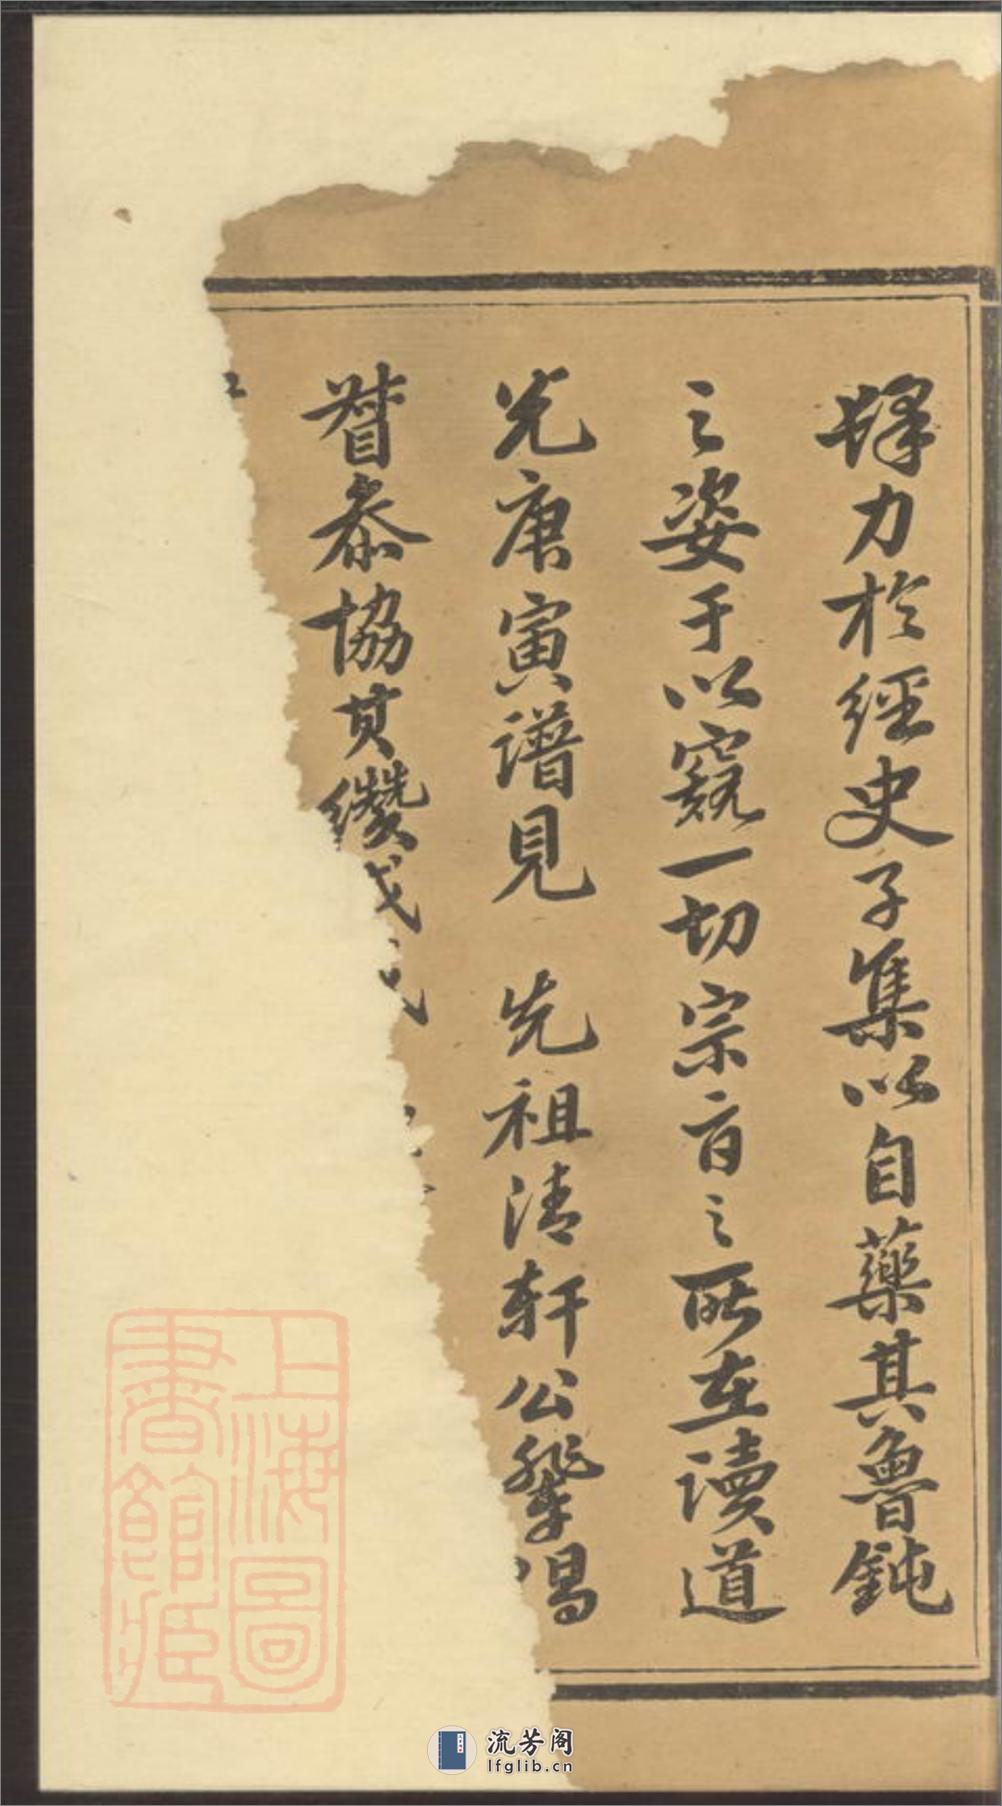 肆力於經史子集以自藥其魯鈍
之姿于以窺一切宗旨之所在讀道
光庚寅譜見 先祖清軒公倡
督協纘
上海圖
書館藏
流芳阁
lfglib.cn